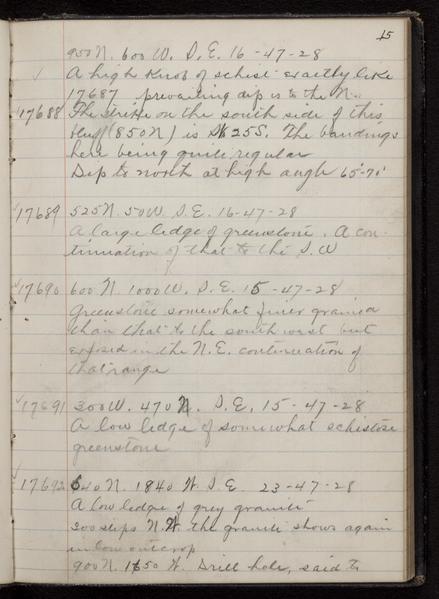 45
950 N. 600 W. S.E. 16-47-28
A high Knob of schist exactly like
17687 prevailing dip is to the N.
17688 The strike on the south side of this
bluff (850 N) is 25S. The bandings
here being quite regular
Dip to north at high angle 65°-70°
17689 525 N. 50 W. S.E. 16-47-28
A large ledge of greenstone. A con-
tinuation of that to the S.W
17690 600 N. 1000 W. S.E. 15-47-28
Greenstone somewhat finer grained
than that to the south west but
exposed in the N.E. continuation of
that range
17691 300 W. 470 N. S.E. 15-47-28
A low ledge of somewhat schistose
greenstone
17692 640 N. 1840 W. S.E. 23-47-28
A low ledge of grey granite
300 steps N.W. the granite shows again
in low outcrop
900 N. 1650 W. Drill hole, said to